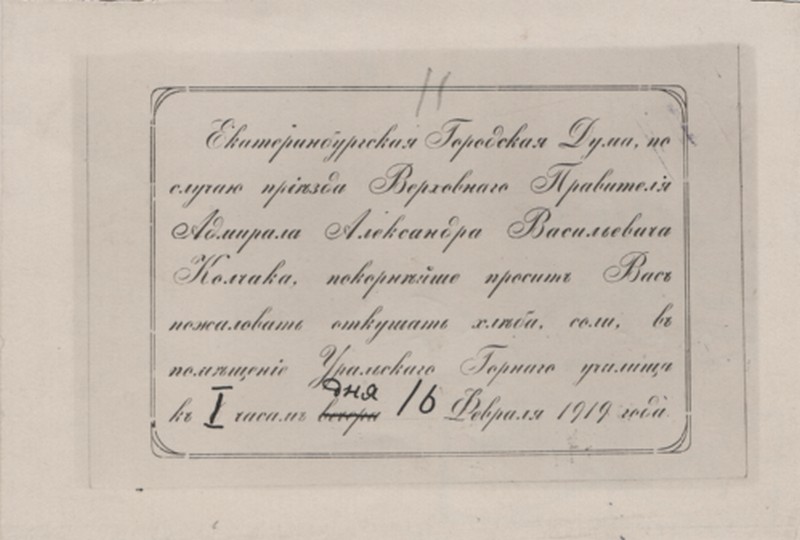 11
Екатеринбургская Городская Дума, по
случаю пріѣзда Верховнаго Правителя
Адмирала Александра Васильевича
Колчака, покорнѣйше проситъ Васъ
пожаловать откушать хлѣба, соли, въ
помѣщеніе Уральскаго Горнаго училища
дня
къ I часамъ вечера 16 Февраля 1919 года.